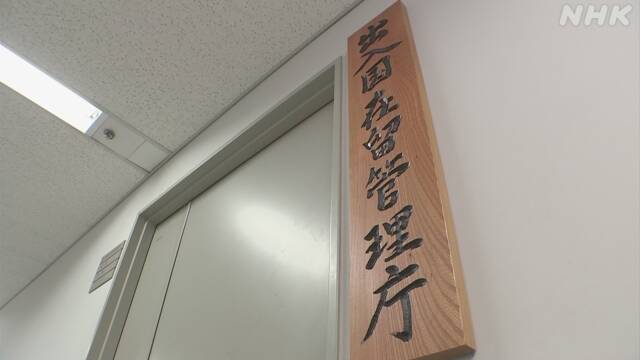 NHK
出入国在留管理庁